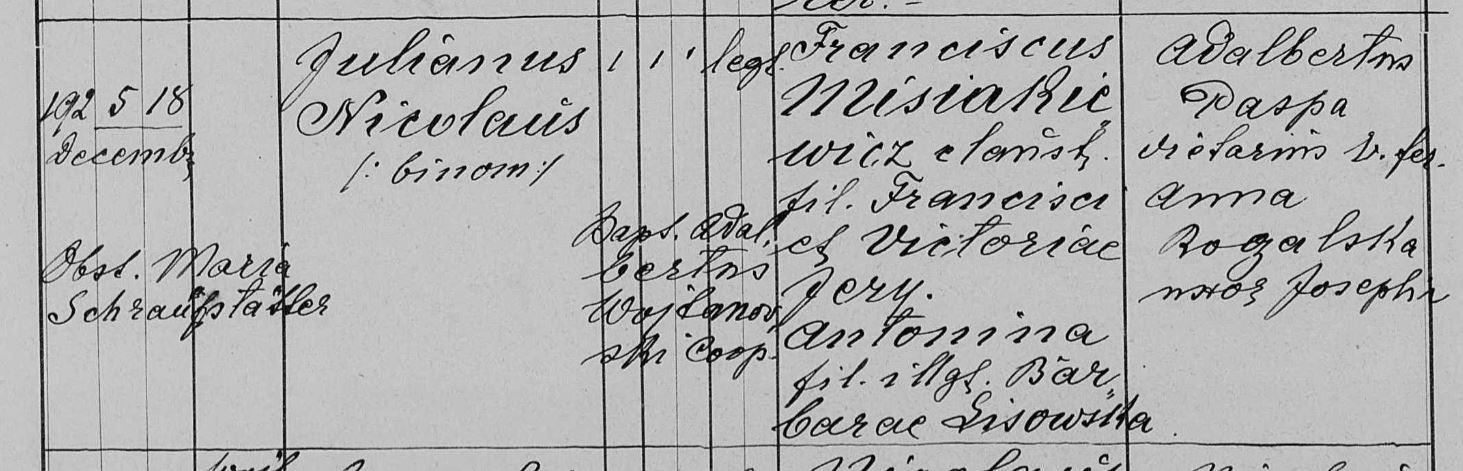 192 5 18
Decemb
Obst. Maria
Schraufstätter
Julianus
Nicolaus
/: binom :/
1 1 1 legt.
Bapt. Adal,
bertus
Wojtanov,
ski Coop.
Franciscus
Misiakie,
wicz claust.
fil. Francisci
et Victoriae
Jery.
Antonina
fil. illgt. Bar,,
barae Lisowska
Adalbertus
Paspa
victarius v. fer.
Anna
Rogalska
uxor Josephi